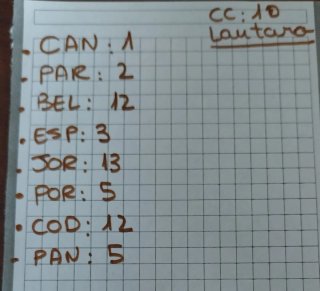 CC: 10
Lautaro
• CAN: 1
• PAR: 2
• BEL: 12
• ESP: 3
• JOR: 13
• POR: 5
• COD: 12
- PAN: 5